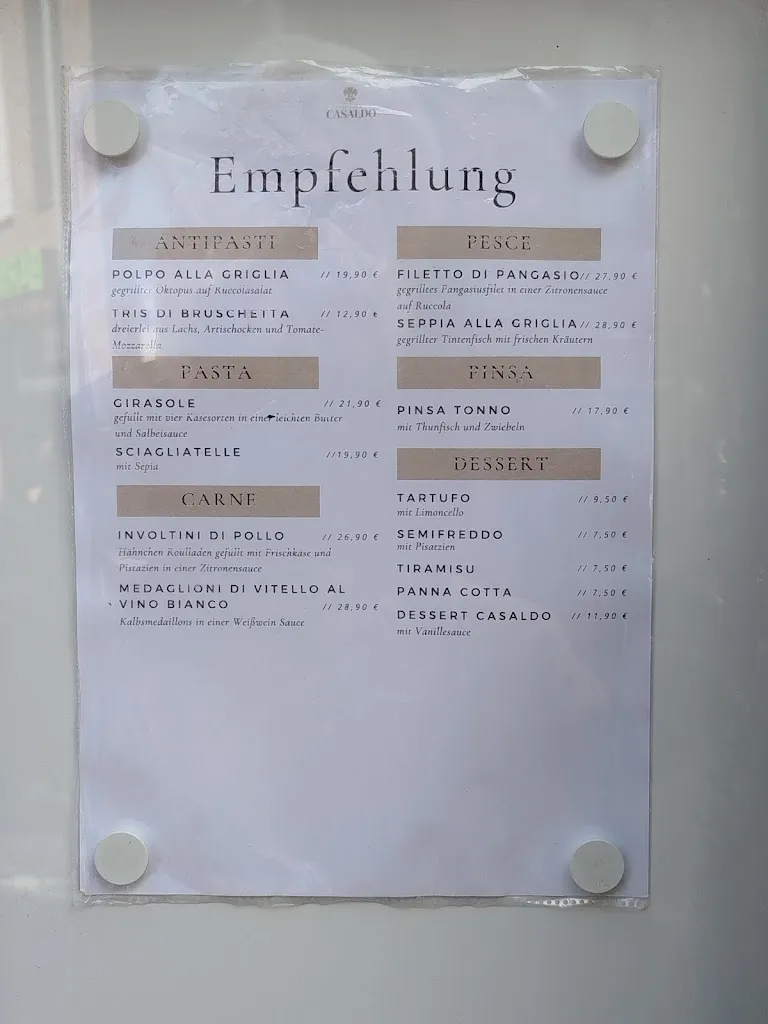 CASALDO
Empfehlung
ANTIPASTI
POLPO ALLA GRIGLIA // 19,90 €
gegrillter Oktopus auf Ruccolasalat
TRIS DI BRUSCHETTA // 12,90 €
dreierlei aus Lachs, Artischocken und Tomate-
Mozzarella
PASTA
GIRASOLE // 21,90 €
gefüllt mit vier Käsesorten in einer leichten Butter
und Salbeisauce
SCIAGLIATELLE //19,90 €
mit Sepia
CARNE
INVOLTINI DI POLLO // 26,90 €
Hähnchen Roulladen gefüllt mit Frischkäse und
Pistazien in einer Zitronensauce
MEDAGLIONI DI VITELLO AL
VINO BIANCO // 28,90 €
Kalbsmedaillons in einer Weißwein Sauce
PESCE
FILETTO DI PANGASIO// 27,90 €
gegrilltes Pangasiusfilet in einer Zitronensauce
auf Ruccola
SEPPIA ALLA GRIGLIA// 28,90 €
gegrillter Tintenfisch mit frischen Kräutern
PINSA
PINSA TONNO // 17,90 €
mit Thunfisch und Zwiebeln
DESSERT
TARTUFO // 9,50 €
mit Limoncello
SEMIFREDDO // 7,50 €
mit Pisatzien
TIRAMISU // 7,50 €
PANNA COTTA // 7,50 €
DESSERT CASALDO // 11,90 €
mit Vanillesauce